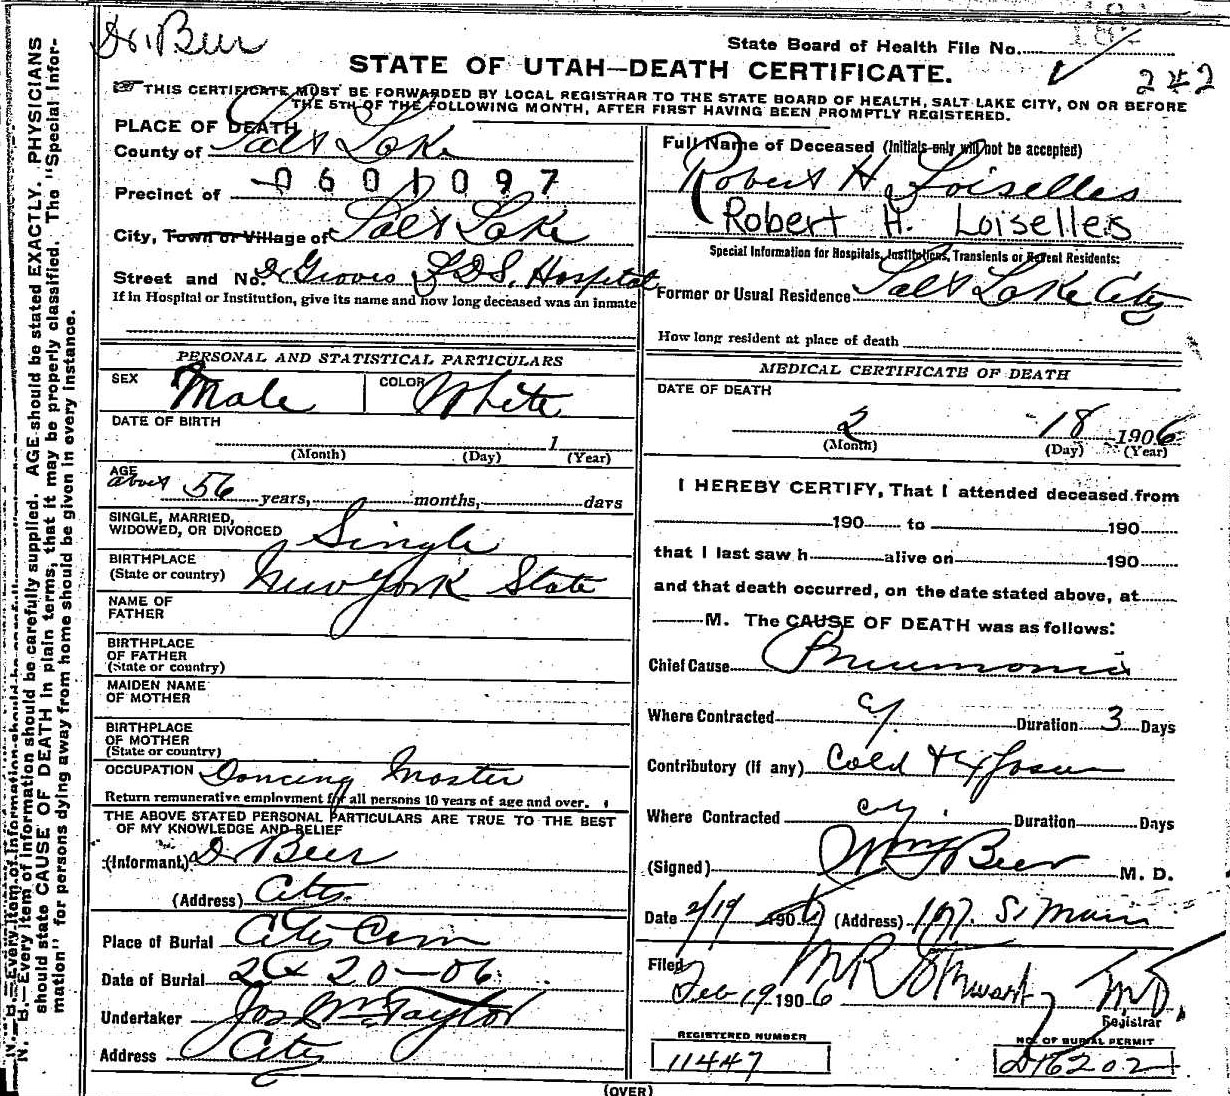 Dr. Beer
State Board of Health File No.
242
STATE OF UTAH—DEATH CERTIFICATE.
THIS CERTIFICATE MUST BE FORWARDED BY LOCAL REGISTRAR TO THE STATE BOARD OF HEALTH, SALT LAKE CITY, ON OR BEFORE
THE 5TH OF THE FOLLOWING MONTH, AFTER FIRST HAVING BEEN PROMPTLY REGISTERED.
PLACE OF DEATH
County of Salt Lake
Precinct of 0601097
City, Town or Village of Salt Lake
Street and No. Dr Groves LDS. Hospital
If in Hospital or Institution, give its name and how long deceased was an inmate
Full Name of Deceased (Initials only will not be accepted)
Robert H. Loiselles
Robert H. Loiselles
Special Information for Hospitals, Institutions, Transients or Recent Residents:
Former or Usual Residence Salt Lake City
How long resident at place of death
PERSONAL AND STATISTICAL PARTICULARS
SEX Male COLOR White
DATE OF BIRTH
1
(Month) (Day) (Year)
AGE about 56 years, months, days
SINGLE, MARRIED,
WIDOWED, OR DIVORCED Single
BIRTHPLACE
(State or country) New York State
NAME OF
FATHER
BIRTHPLACE
OF FATHER
(State or country)
MAIDEN NAME
OF MOTHER
BIRTHPLACE
OF MOTHER
(State or country)
OCCUPATION Dancing Master
Return remunerative employment for all persons 10 years of age and over.
THE ABOVE STATED PERSONAL PARTICULARS ARE TRUE TO THE BEST
OF MY KNOWLEDGE AND BELIEF
(Informant) Dr Beer
(Address) City
Place of Burial City Cem
Date of Burial 2 20-06
Undertaker Jos Wm Taylor
Address City
MEDICAL CERTIFICATE OF DEATH
DATE OF DEATH
2 18 1906
(Month) (Day) (Year)
I HEREBY CERTIFY, That I attended deceased from
190 to 190
that I last saw h alive on 190
and that death occurred, on the date stated above, at
M. The CAUSE OF DEATH was as follows:
Chief Cause Pneumonia
Where Contracted Cy. Duration 3 Days
Contributory (if any) Cold &
Where Contracted Cy. Duration Days
(Signed) Wm Beer M. D.
Date 2/19 1906 (Address) S. Main
Filed
Feb 19 1906 M R Stewart M.D.
Registrar
REGISTERED NUMBER
11447
NO. OF BURIAL PERMIT
D16202
(OVER)
N. B.—Every item of information should be carefully supplied. AGE should be stated EXACTLY. PHYSICIANS
should state CAUSE OF DEATH in plain terms, that it may be properly classified. The "Special Infor-
mation" for persons dying away from home should be given in every instance.